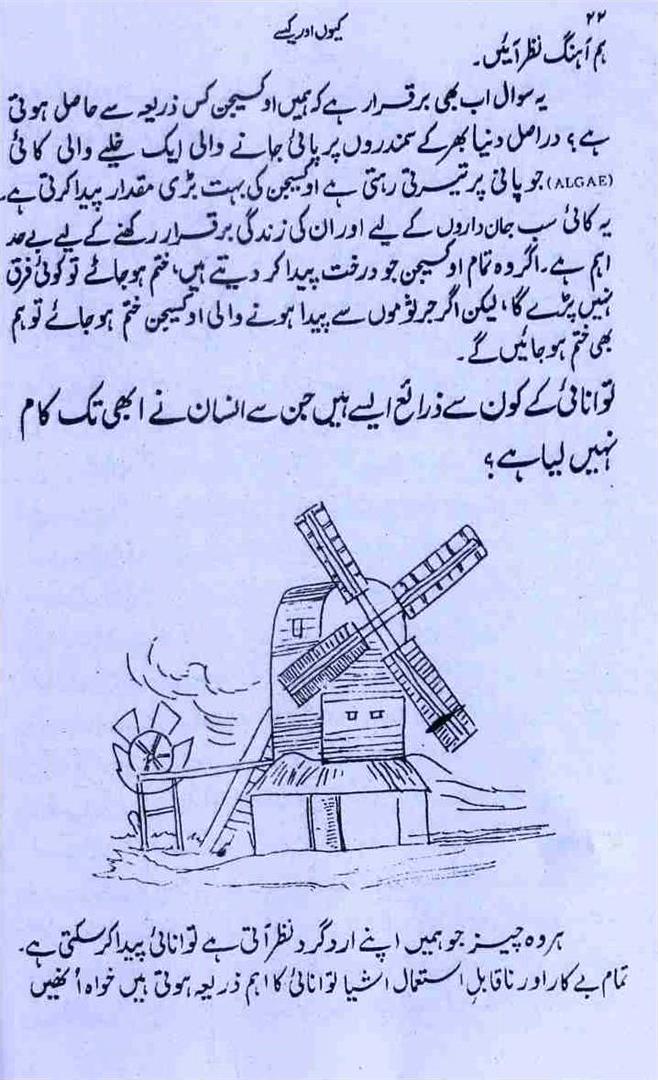 ۲۲
کیوں اور کیسے
ہم آہنگ نظر آئیں۔
یہ سوال اب بھی برقرار ہے کہ ہمیں اوکسیجن کس ذریعہ سے حاصل ہوتی
ہے؟ دراصل دنیا بھر کے سمندروں پر پائی جانے والی ایک خلیے والی کائی
(ALGAE) جو پانی پر تیرتی رہتی ہے اوکسیجن کی بہت بڑی مقدار پیدا کرتی ہے۔
یہ کائی سب جان داروں کے لیے اور ان کی زندگی برقرار رکھنے کے لیے بے حد
اہم ہے۔ اگر وہ تمام اوکسیجن جو درخت پیدا کر دیتے ہیں، ختم ہوجائے تو کوئی فرق
نہیں پڑے گا، لیکن اگر جرثوموں سے پیدا ہونے والی اوکسیجن ختم ہوجائے تو ہم
بھی ختم ہوجائیں گے۔
توانائی کے کون سے ذرائع ایسے ہیں جن سے انسان نے ابھی تک کام
نہیں لیا ہے؟
ہر وہ چیز جو ہمیں اپنے اردگرد نظر آتی ہے توانائی پیدا کرسکتی ہے۔
تمام بے کار اور ناقابلِ استعمال اشیا توانائی کا اہم ذریعہ ہوتی ہیں خواہ اُنھیں